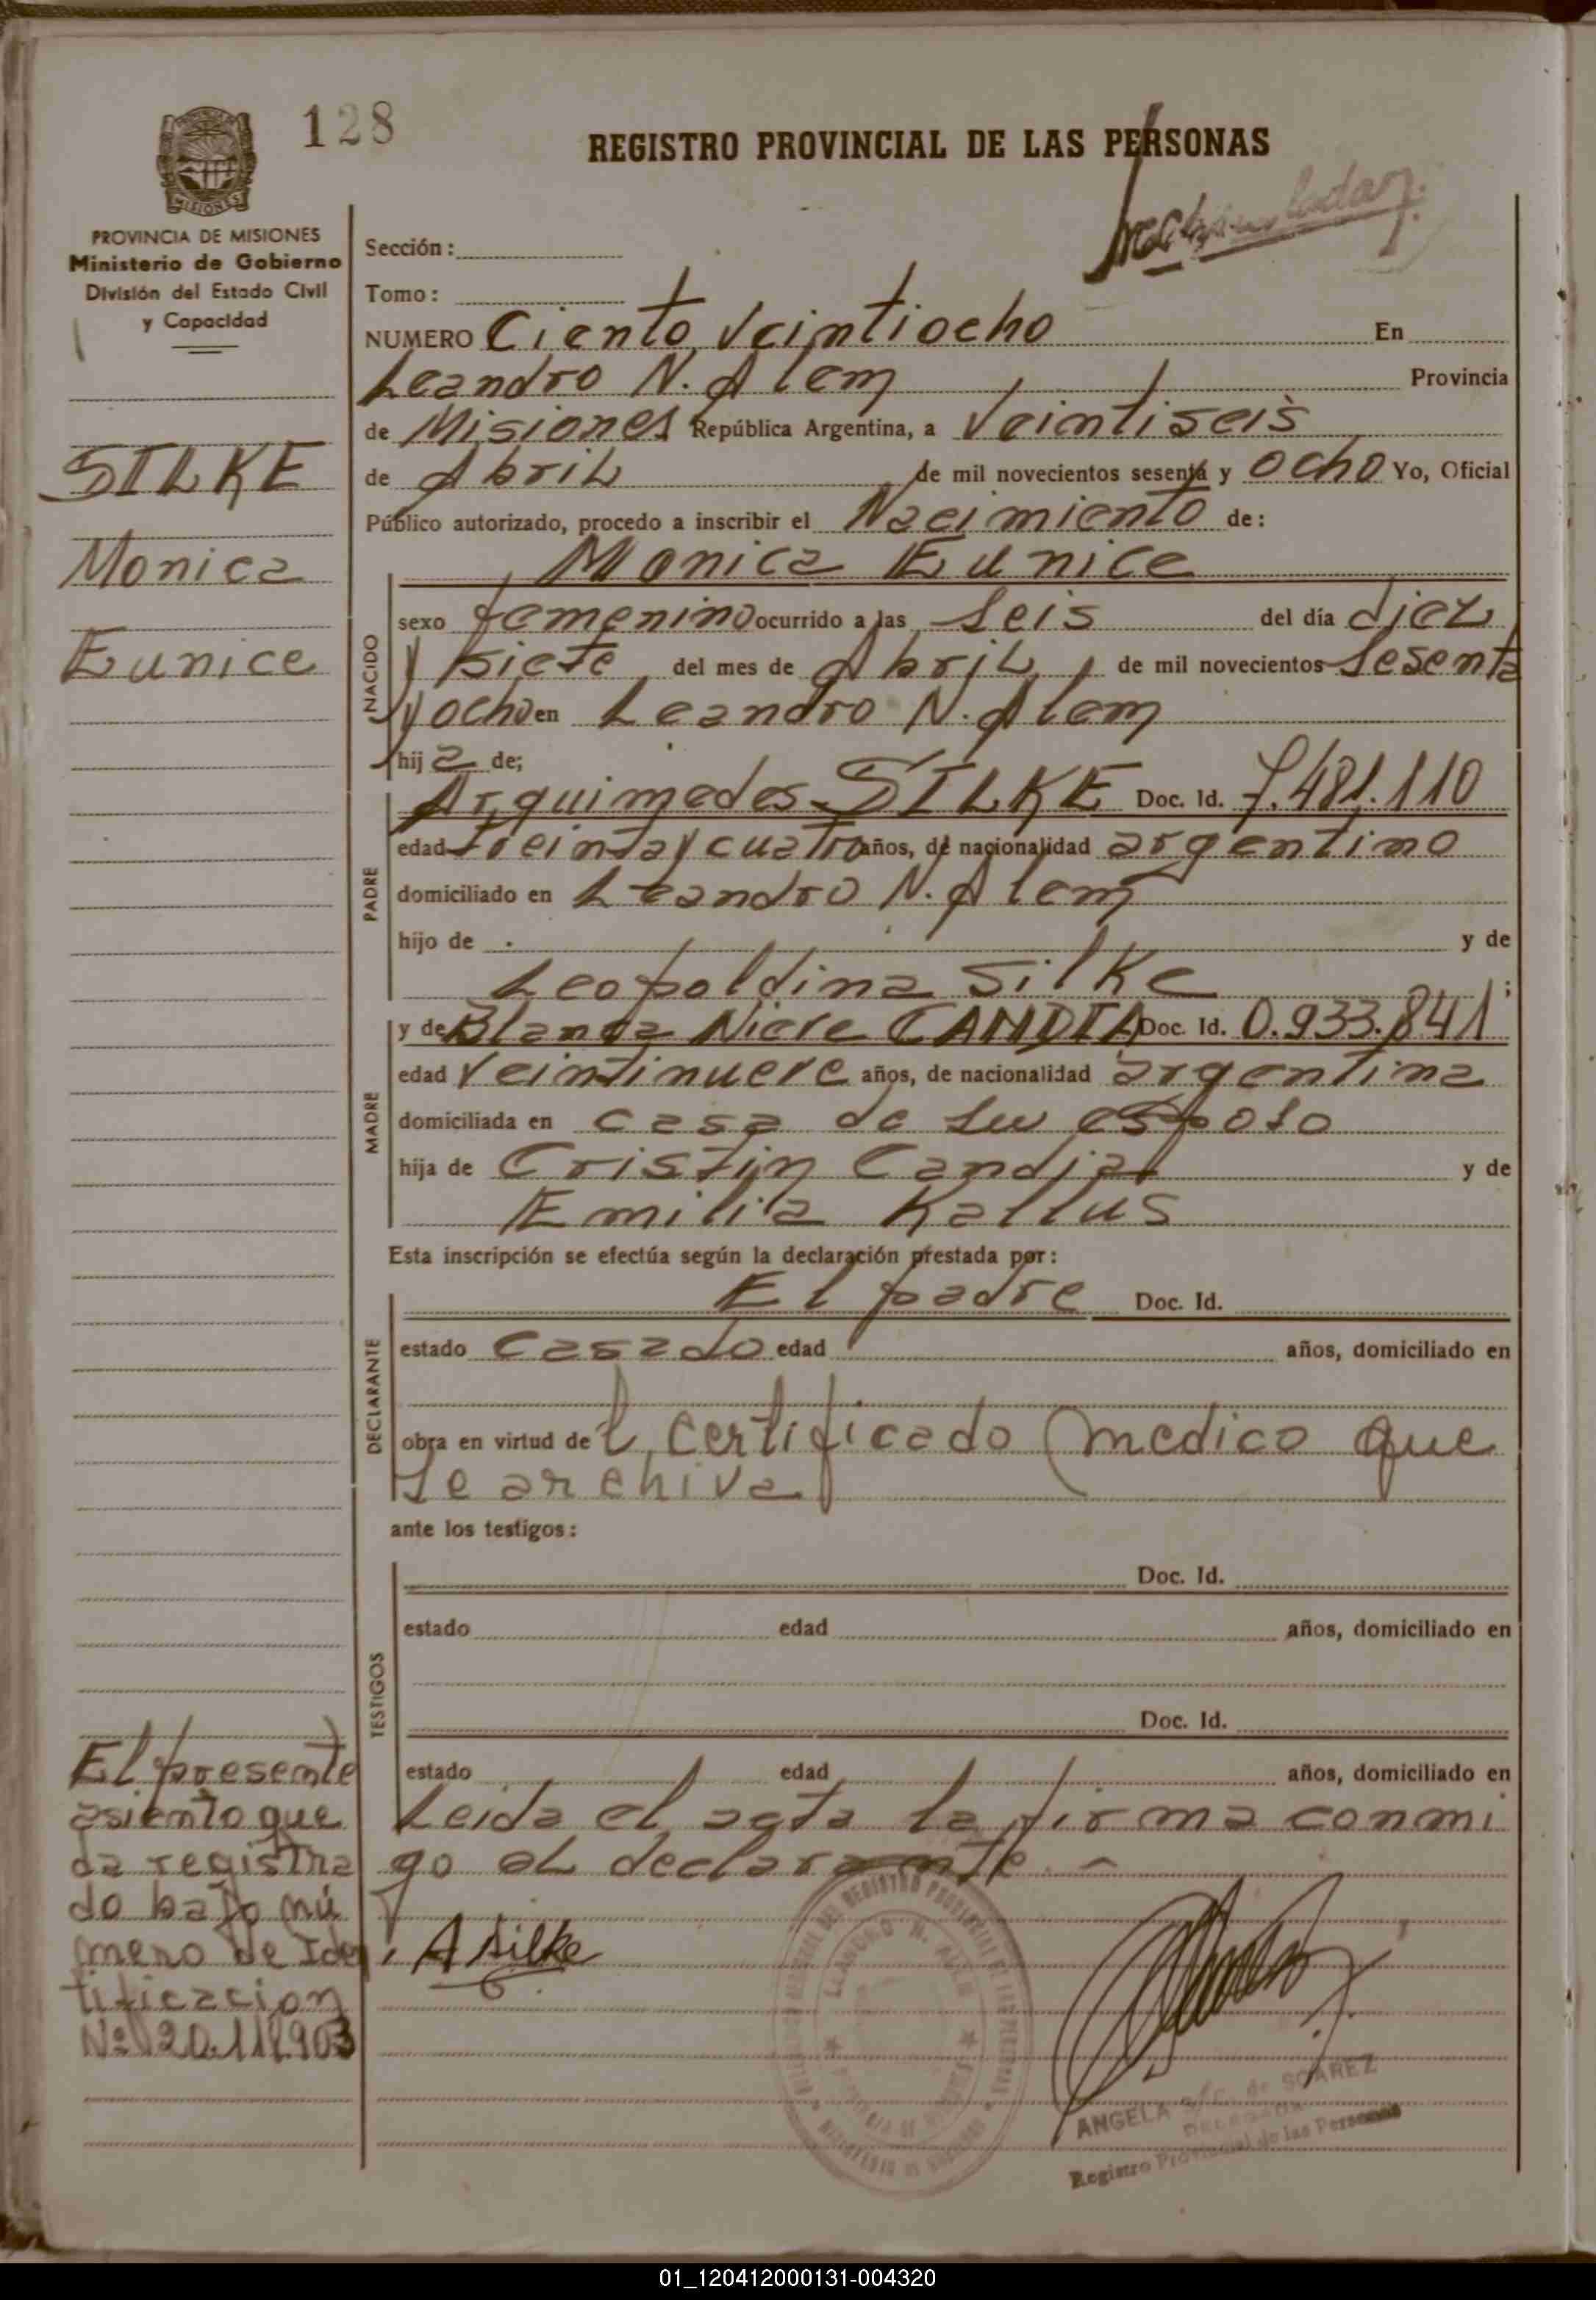 128
REGISTRO PROVINCIAL DE LAS PERSONAS
MISIONES
PROVINCIA DE MISIONES
Ministerio de Gobierno
División del Estado Civil
y Capacidad
SILKE
Monica
Eunice
Sección:
Tomo:
NUMERO Ciento Veintiocho En
Leandro N. Alem Provincia
de Misiones República Argentina, a Veintiseis
de Abril de mil novecientos sesenta y ocho Yo, Oficial
Público autorizado, procedo a inscribir el Nacimiento de:
Monica Eunice
NACIDO
sexo femenino ocurrido a las Seis del día diez
y siete del mes de Abril de mil novecientos Sesenta
y ocho en Leandro N. Alem
hija de;
PADRE
Arquimedes SILKE Doc. Id. 7.481.110
edad treinta y cuatro años, de nacionalidad argentino
domiciliado en Leandro N. Alem
hijo de y de
Leopoldina Silke ;
MADRE
y de Blanca Nieve CANDIA Doc. Id. 0.933.841
edad Veintinueve años, de nacionalidad argentina
domiciliada en casa de su esposo
hija de Cristin Candia y de
Emilia Kallus
Esta inscripción se efectúa según la declaración prestada por:
DECLARANTE
El padre Doc. Id.
estado Casado edad años, domiciliado en
obra en virtud del certificado medico que
se archiva
ante los testigos:
TESTIGOS
Doc. Id.
estado edad años, domiciliado en
Doc. Id.
estado edad años, domiciliado en
Leida el acta la firma conmi
go el declarante. -
A Silke
El presente
asiento que
da registra
do bajo nú
mero de Iden
tificacion
Nº 20.118.903
LEANDRO N. ALEM
ANGELA de SOAREZ
Registro Provincial de las Personas
01_120412000131-004320